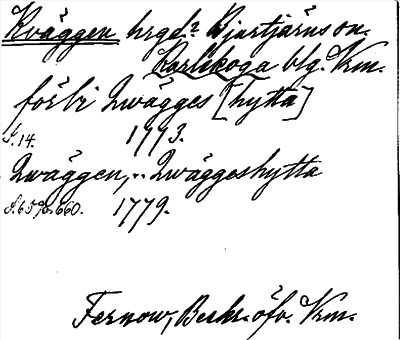 Kväggen hrgd? Bjurtjärns sn.
Karlskoga blg. Vrm.
förbi Qwägges [hytta]
S. 14. 1773.
Qwäggen, .. Qwäggeshytta
1779.
Fernow, Beskr. öfv. Vrm.